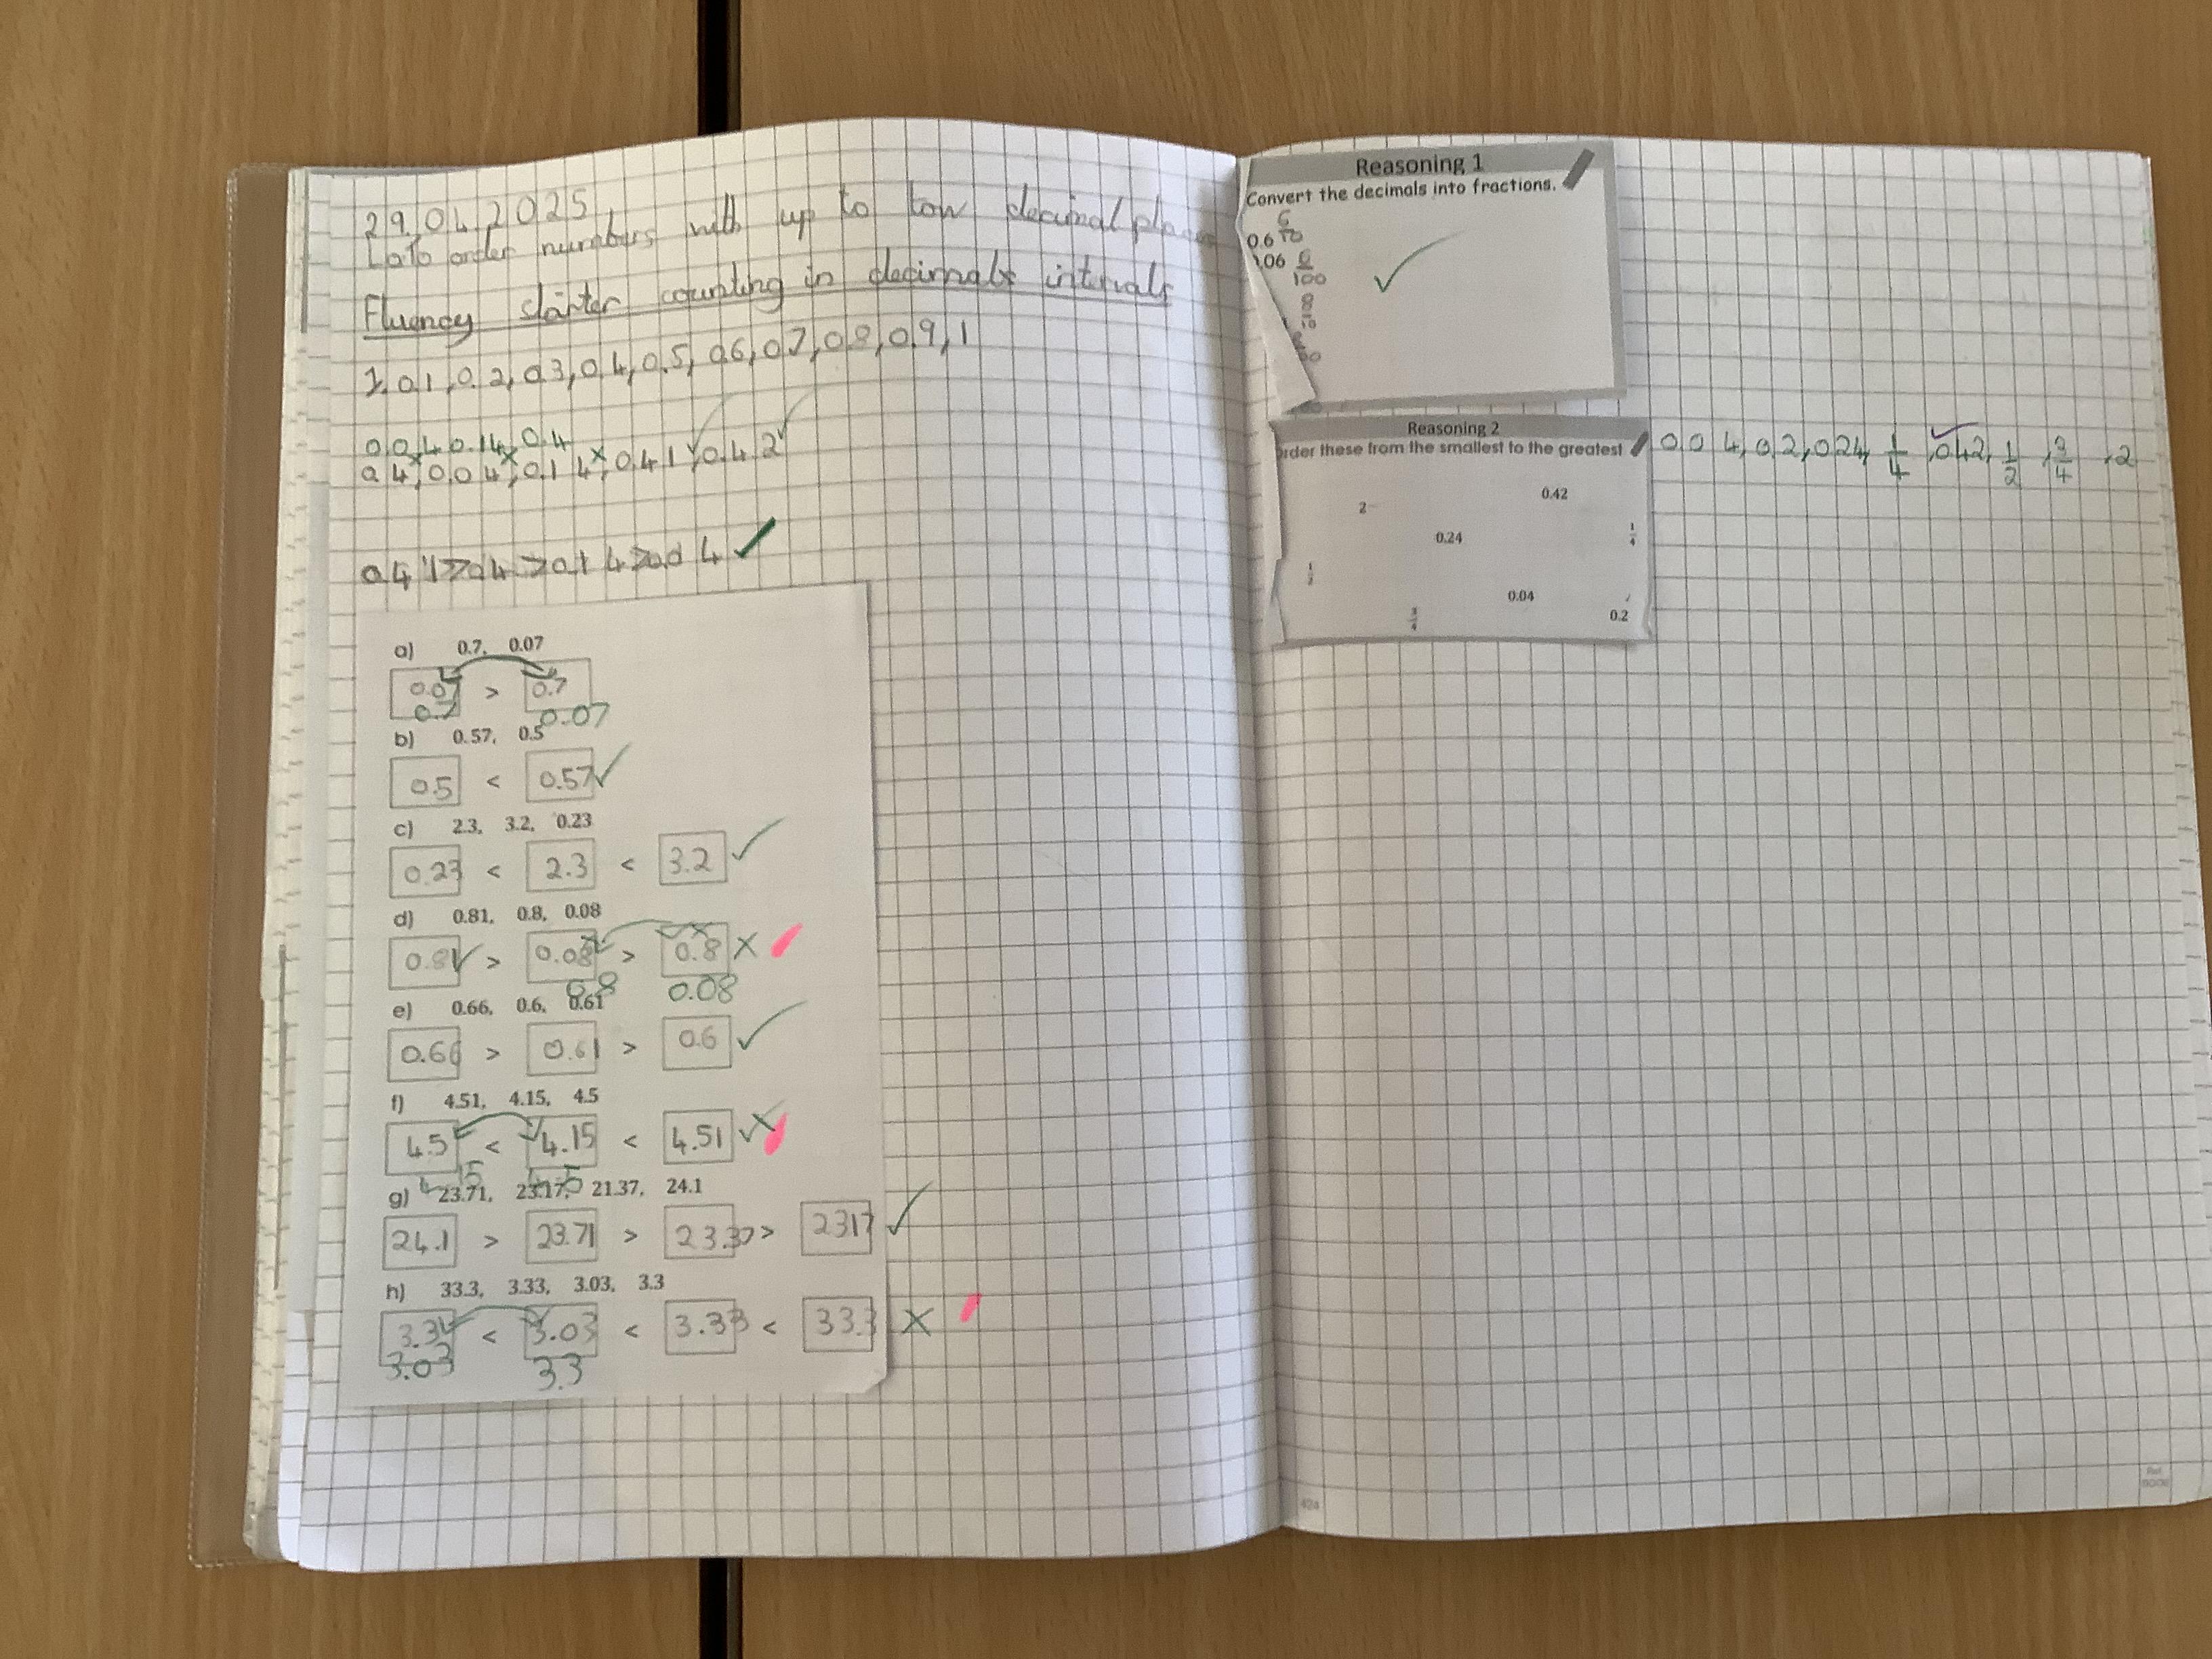 29.04.2025
Lo To order numbers with up to tow decimal places
Fluency starter counting in decimals intervals
1. 0.1, 0.2, 0.3, 0.4, 0.5, 0.6, 0.7, 0.8, 0.9, 1
0.04 0.14, 0.4
0.4, 0.04, 0.14, 0.41, 0.42
0.41 > 0.4 > 0.14 > 0.04
a) 0.7, 0.07
0.07 > 0.7
0.7 0.07
b) 0.57, 0.5
0.5 < 0.57
c) 2.3, 3.2, 0.23
0.23 < 2.3 < 3.2
d) 0.81, 0.8, 0.08
0.81 > 0.08 > 0.8
0.8 0.08
e) 0.66, 0.6, 0.61
0.66 > 0.61 > 0.6
f) 4.51, 4.15, 4.5
4.5 < 4.15 < 4.51
4.15 4.5
g) 23.71, 23.17, 21.37, 24.1
24.1 > 23.71 > 23.37 > 23.17
h) 33.3, 3.33, 3.03, 3.3
3.3 < 3.03 < 3.33 < 33.3
3.03 3.3
Reasoning 1
Convert the decimals into fractions.
0.6 6/10
0.06 6/100
8/10
Reasoning 2
order these from the smallest to the greatest
0.04, 0.2, 0.24, 1/4, 0.42, 1/2, 3/4, 2
0.42
2
0.24
1/4
1/2
0.04
3/4
0.2